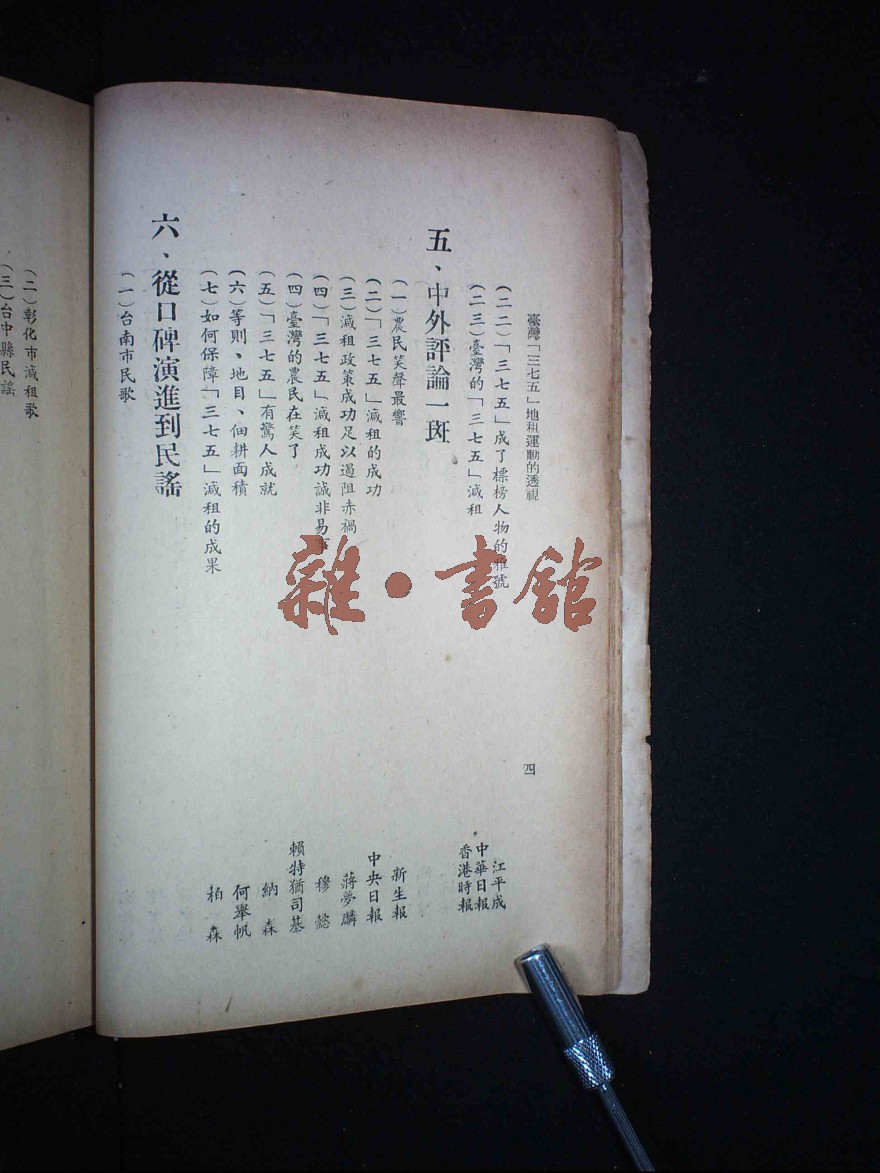 臺灣「三七五」地租運動的透視
四
(二二)「三七五」成了標榜人物的雅號
江平成
(二三)臺灣的「三七五」減租
中華日報
香港時報
五、中外評論一斑
(一)農民笑聲最響
新生報
(二)「三七五」減租的成功
中央日報
(三)減租政策成功足以遏阻赤禍
蔣夢麟
(四)「三七五」減租成功誠非易事
穆懿
(四)臺灣的農民在笑了
賴特猶司基
(五)「三七五」有驚人成就
納森
(六)等則、地目、佃耕面積
何舉帆
(七)如何保障「三七五」減租的成果
柏森
六、從口碑演進到民謠
(一)台南市民歌
(二)彰化市減租歌
(三)台中縣民謠
雜·書館